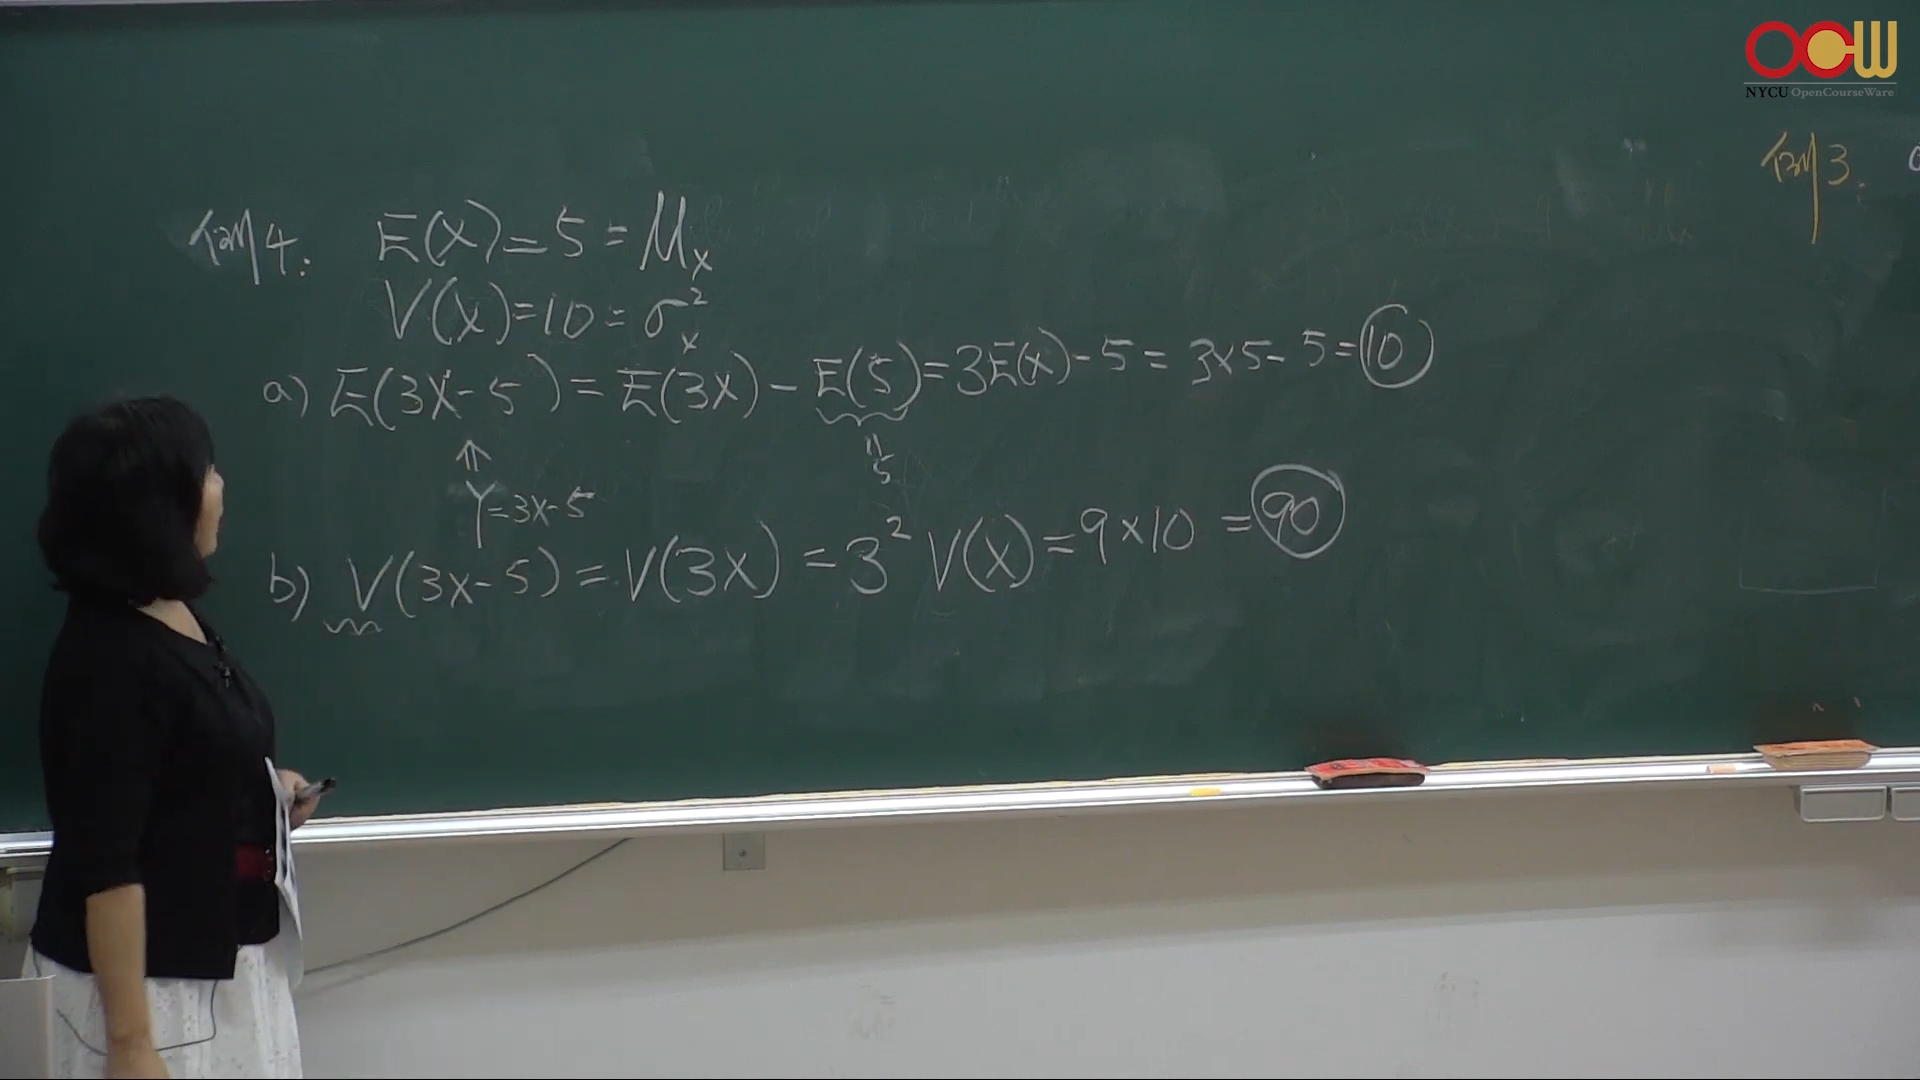 OCW
NYCU OpenCourseWare
例3.
例4: E(X) = 5 = μ_X
V(X) = 10 = σ_X^2
a) E(3X-5) = E(3X) - E(5) = 3E(X) - 5 = 3×5 - 5 = 10
5
Y=3X-5
b) V(3X-5) = V(3X) = 3^2 V(X) = 9×10 = 90